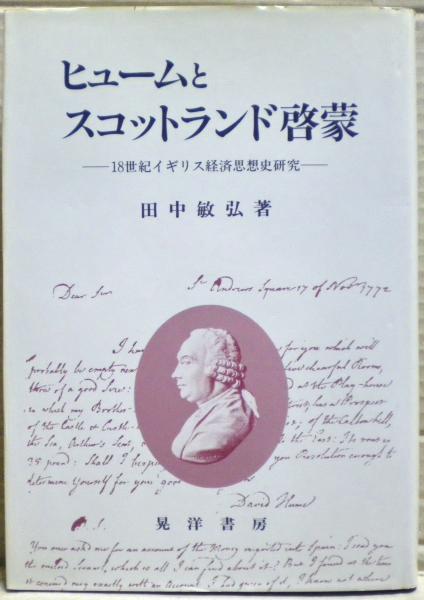 ヒュームと
スコットランド啓蒙
―18世紀イギリス経済思想史研究―
田中敏弘著
St Andrews Square 17 of Novr 1772
Dear Sir
I ha for you which will
probably be empty near cheerful Rooms,
those of a good Sew: d at the Play-house
in which my Brother has a Prospect
of the Castle & Castle- of the Calton hill,
the Sea, Arthur's Seat, the East: The rent is
35 pound: Shall I bespeak you Resolution enough to
determine yourself for your
David Hume
晃洋書房
P.S.
You once asked me for an account of the Money imported into Spain: I send you
the enclosed which is all I can find about it: But I found at the time
it coincided very exactly with an Account I had given of it, I know not where